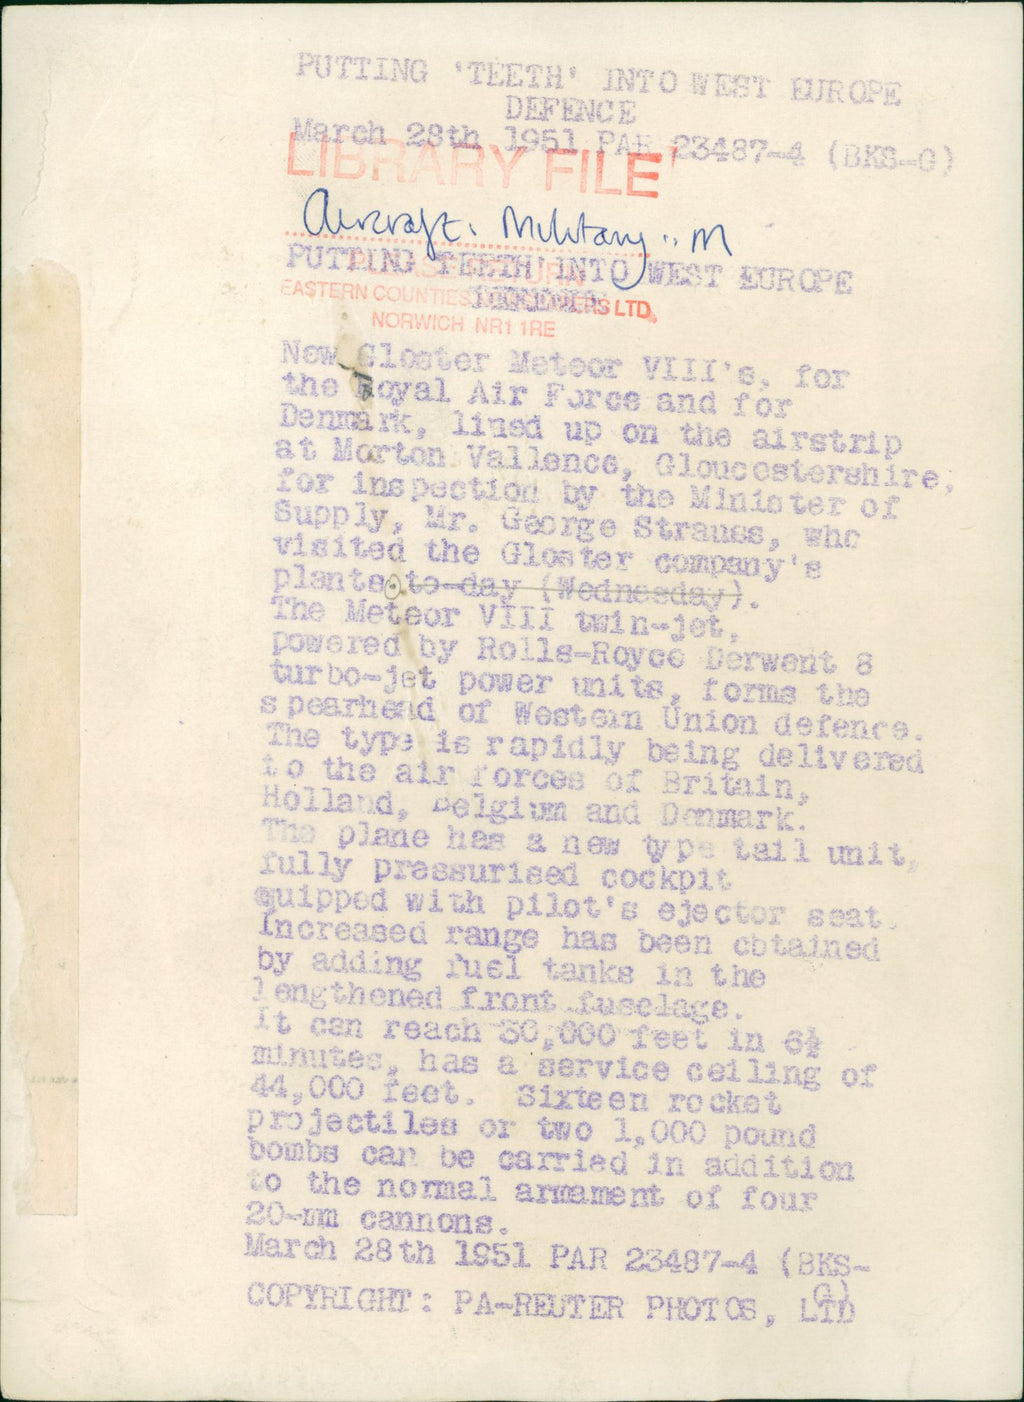 PUTTING 'TEETH' INTO WEST EUROPE
DEFENCE
March 28th 1951 PAR 23487-4 (BKS-G)
LIBRARY FILE
Aircraft. Military.. M
PUTTING 'TEETH' INTO WEST EUROPE
DEFENCE
PLEASE RETURN
EASTERN COUNTIES NEWSPAPERS LTD.
NORWICH NR1 1RE
New Gloster Meteor VIII's, for
the Royal Air Force and for
Denmark, lined up on the airstrip
at Morton Vallence, Gloucestershire,
for inspection by the Minister of
Supply, Mr. George Strauss, who
visited the Gloster company's
plants to-day (Wednesday).
The Meteor VIII twin-jet,
powered by Rolls-Royce Derwent 8
turbo-jet power units, forms the
spearhead of Western Union defence.
The type is rapidly being delivered
to the air forces of Britain,
Holland, Belgium and Denmark.
The plane has a new type tail unit,
fully pressurised cockpit
equipped with pilot's ejector seat.
Increased range has been obtained
by adding fuel tanks in the
lengthened front fuselage.
It can reach 30,000 feet in 6½
minutes, has a service ceiling of
44,000 feet. Sixteen rocket
projectiles or two 1,000 pound
bombs can be carried in addition
to the normal armament of four
20-mm cannons.
March 28th 1951 PAR 23487-4 (BKS-
G)
COPYRIGHT: PA-REUTER PHOTOS, LTD